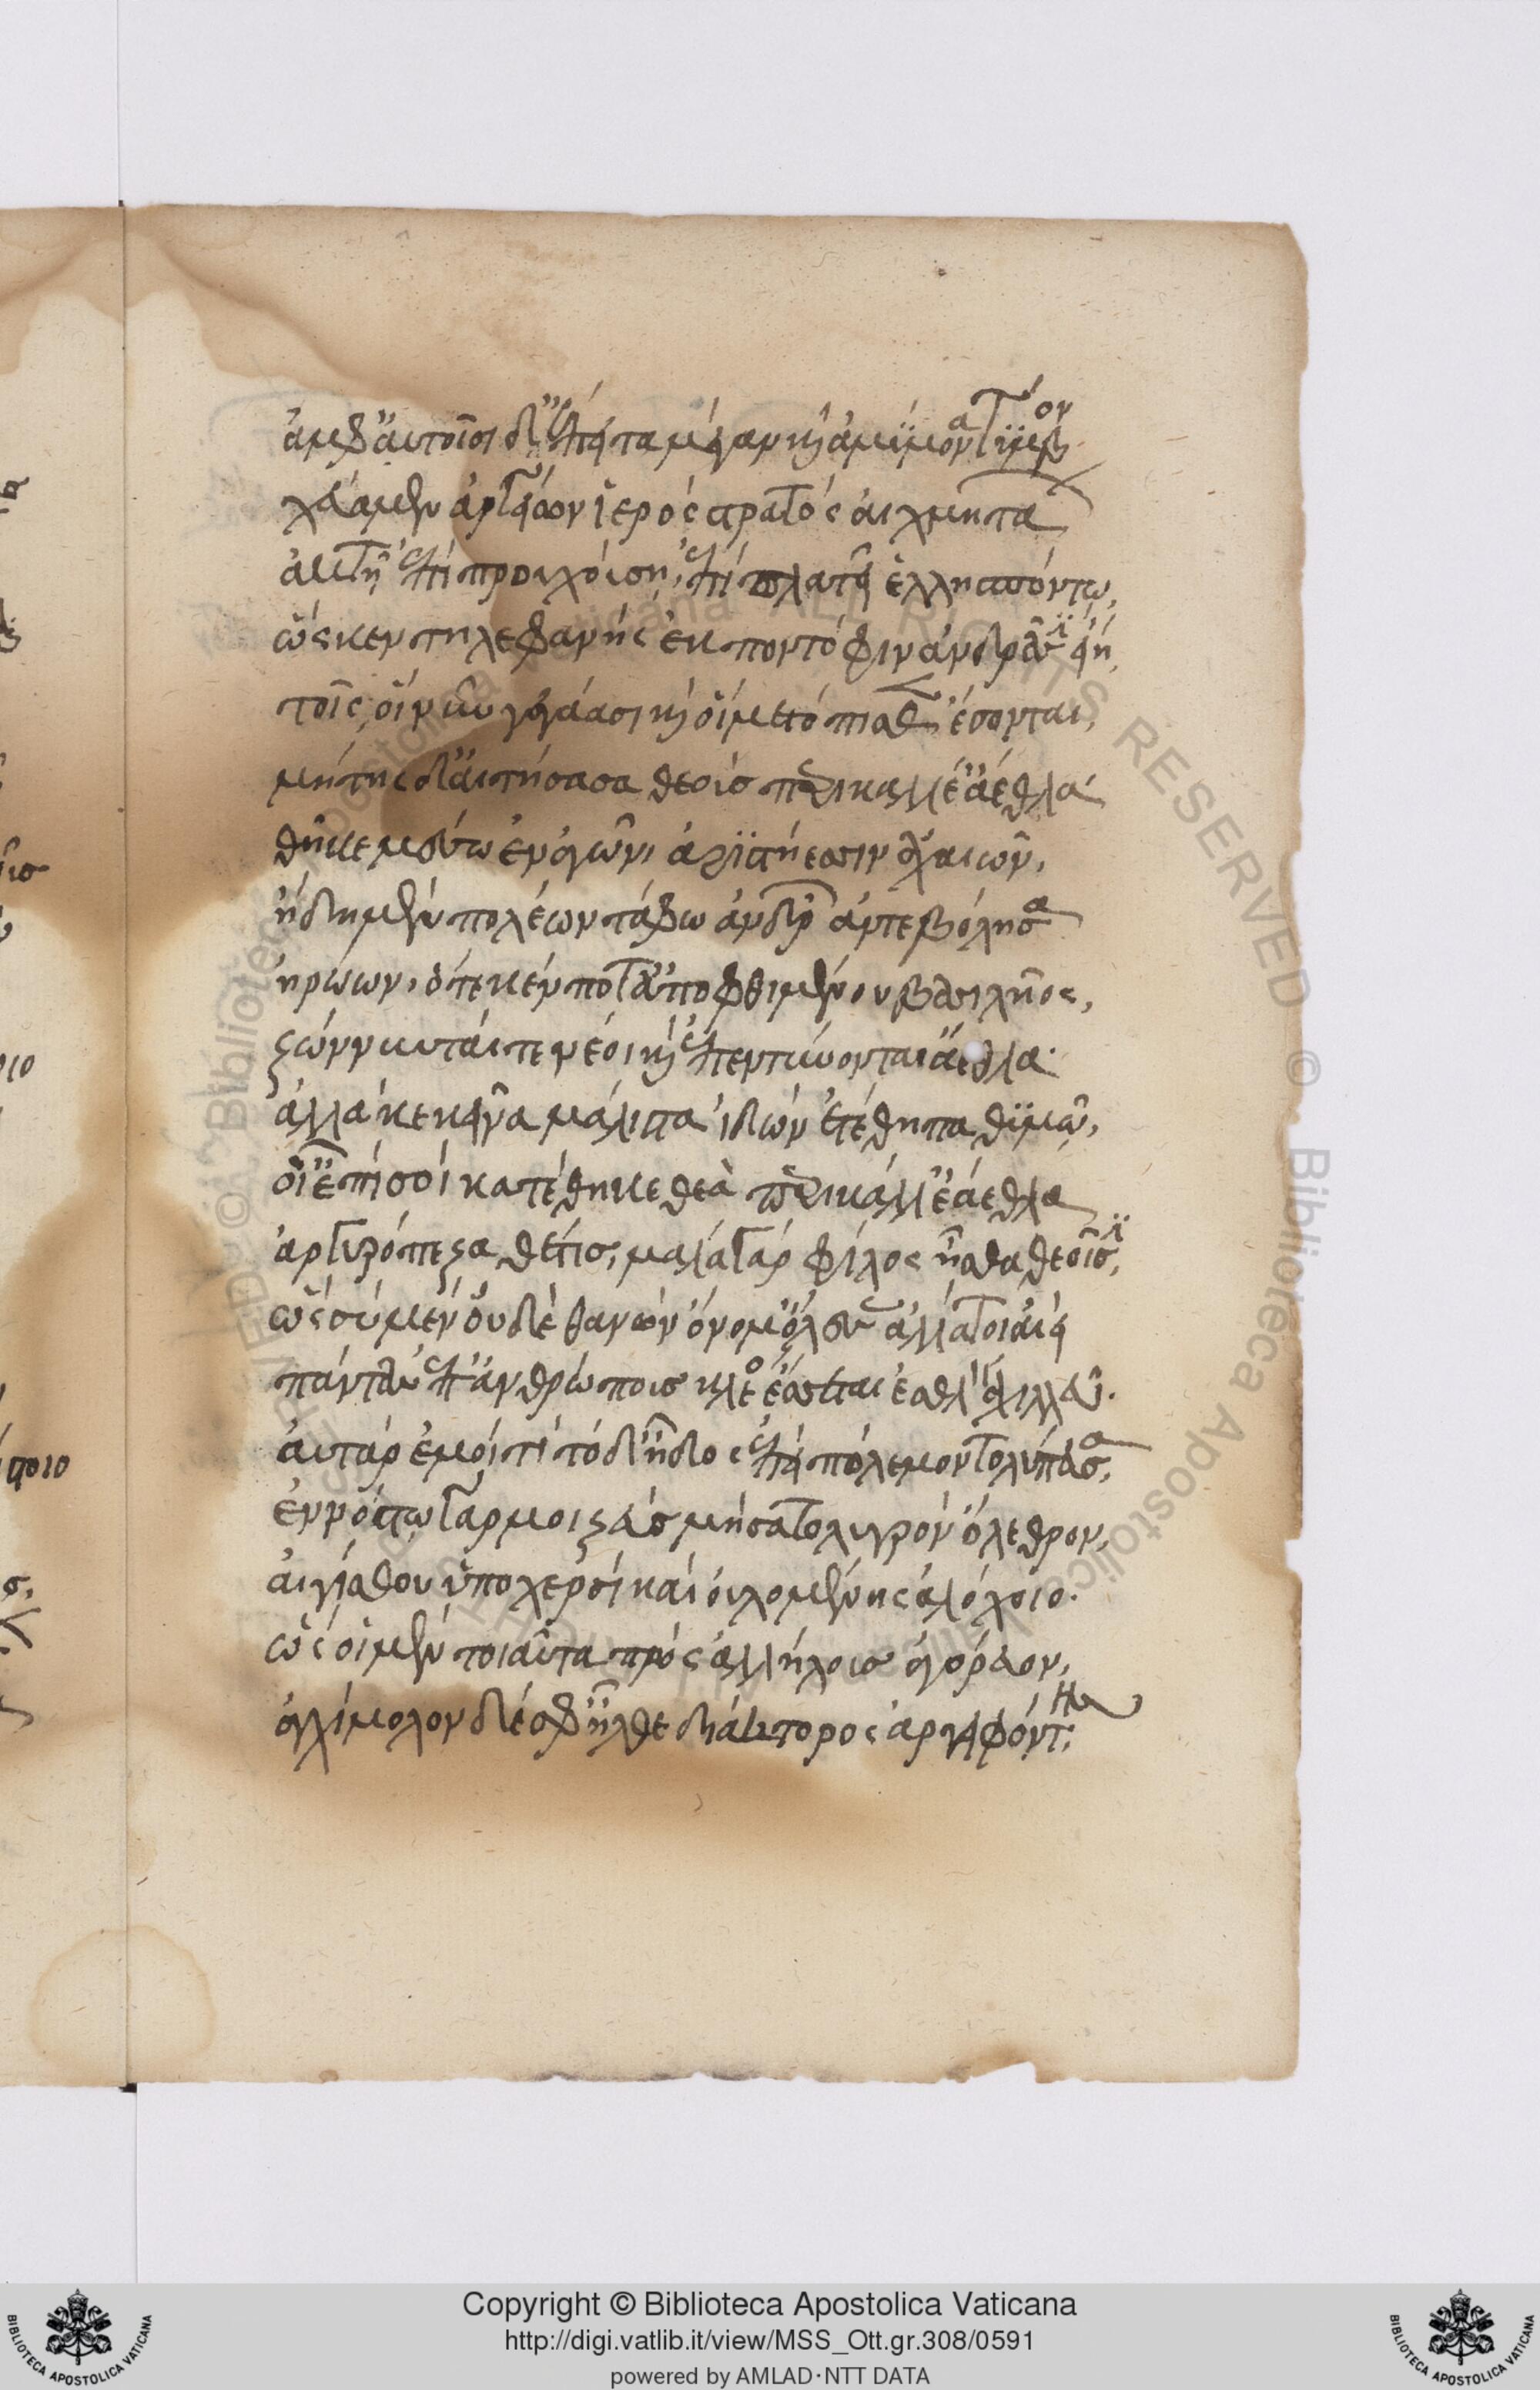 ἀμφ' αὐτοῖσι δ' ἔπειτα μέγαν καὶ ἀμύμονα τύμβον
χεύαμεν ἀργείων ἱερὸς στρατὸς αἰχμητάων
ἀκτῇ ἔπι προυχούσῃ, ἐπὶ πλατεῖ ἑλλησπόντω,
ὥς κεν τηλεφανὴς ἐκ ποντόφιν ἀνδράσιν εἴη
τοῖς οἳ νῦν γεγάασι καὶ οἳ μετόπισθεν ἔσονται,
μήτηρ δ' αἰτήσασα θεοὺς περικαλλέ' ἄεθλα
θῆκε μέσω ἐν ἀγῶνι ἀριστήεσσιν ἀχαιῶν,
ἤδη μὲν πολέων τάφω ἀνδρῶν ἀντεβόλησα
ἡρώων, ὅτε κέν ποτ' ἀποφθιμένου βασιλῆος,
ζώννυνταί τε νέοι καὶ ἐπεντύνονται ἄεθλα.
ἀλλά κε κεῖνα μάλιστα ἰδὼν ἐτέθηπα θυμῶ,
οἷ' ἐπὶ σοὶ κατέθηκε θεὰ περικαλλέ' ἄεθλα
ἀργυρόπεζα θέτις, μάλα γὰρ φίλος ἦσθα θεοῖσι,
ὣς σὺ μὲν οὐδὲ θανὼν ὄνομ' ὤλεσας ἀλλά τοι αἰεὶ
πάντας ἐπ' ἀνθρώπους κλέος ἔσσεται ἐσθλὸν ἀχιλλεῦ.
αὐτὰρ ἐμοὶ τί τόδ' ἦδος ἐπεὶ πόλεμον τολύπευσα,
ἐν νόστω γάρ μοι ζεὺς μήσατο λυγρὸν ὄλεθρον,
αἰγίσθου ὑπὸ χερσὶ καὶ οὐλομένης ἀλόχοιο.
ὣς οἱ μὲν τοιαῦτα πρὸς ἀλλήλους ἀγόρευον,
ἀγχίμολον δέ σφ' ἦλθε διάκτορος ἀργειφόντης
Copyright © Biblioteca Apostolica Vaticana
http://digi.vatlib.it/view/MSS_Ott.gr.308/0591
powered by AMLAD·NTT DATA